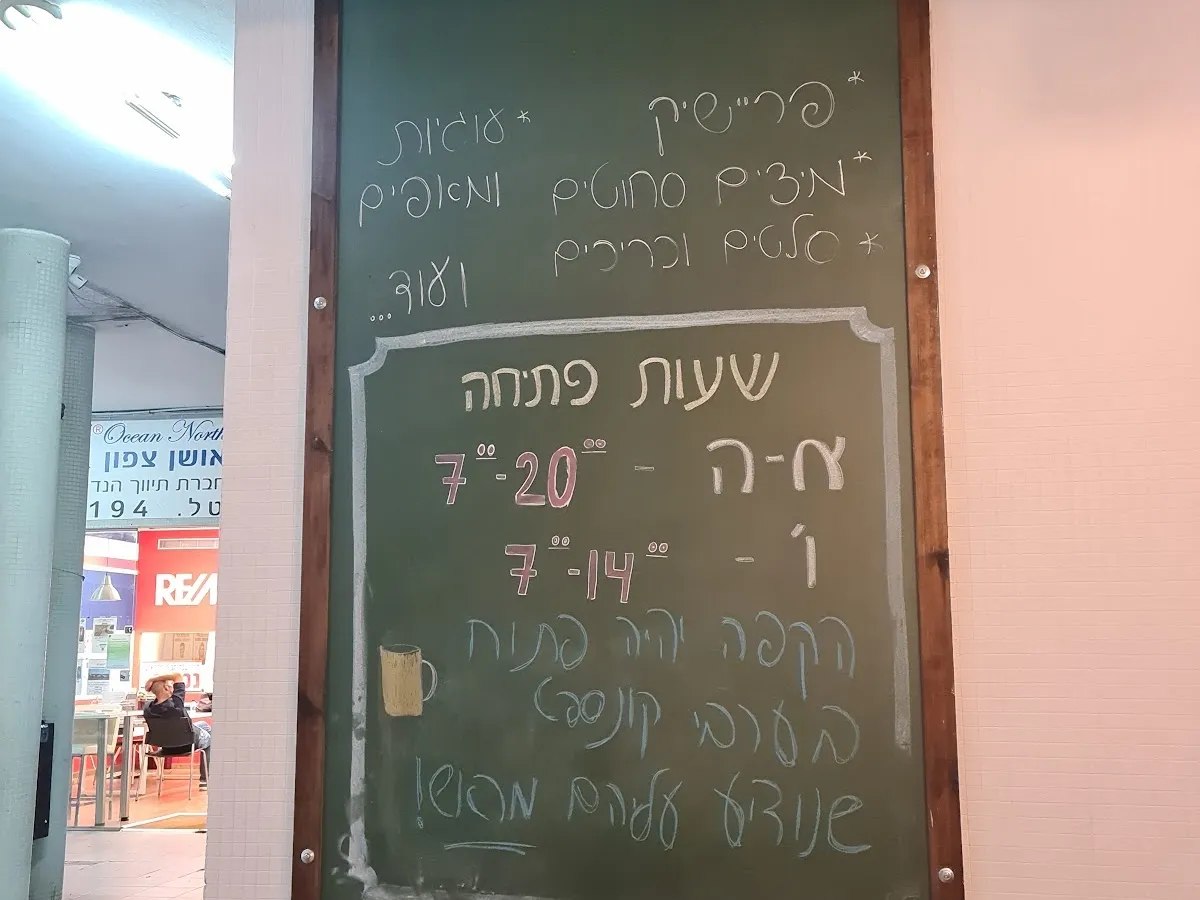 * פריישיק
* מיצים סחוטים
* סלטים וכריכים
* עוגיות
ומאפים
ועוד...
שעות פתיחה
א-ה - 7:00-20:00
ו' - 7:00-14:00
הקפה יהיה פתוח
בערבי קונספט
שנודיע עליהם מראש!
® Ocean North
אושן צפון
חברת תיווך הנד
טל. 194
RE/M